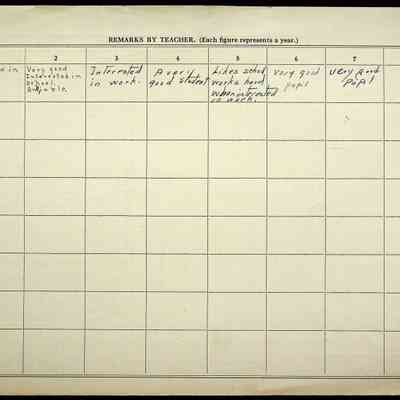 REMARKS BY TEACHER. (Each figure represents a year.)
2 3 4 5 6 7
in
Very good
Interested in
School.
Interested
in work.
A very
good student
Likes school
works hard
when interested
in work.
very good
pupil
Very good
Pupil